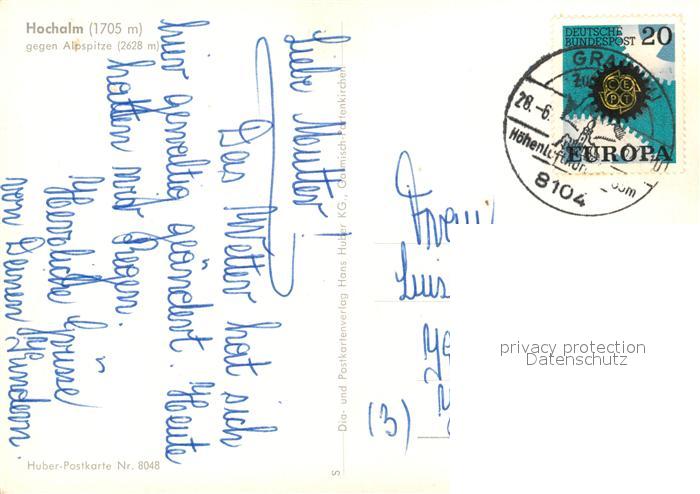 Hochalm (1705 m)
gegen Alpspitze (2628 m)
Liebe Mutter!
Das Wetter hat sich
hier gewaltig geändert. Heute
hatten wir Regen.
Herzliche Grüsse
von Deinen Kindern.
Huber-Postkarte Nr. 8048
Dia- und Postkartenverlag Hans Huber KG., Garmisch-Partenkirchen
S
DEUTSCHE
BUNDESPOST 20
CEPT
EUROPA
GRA
28.-6.
8104
Luis
(3)
privacy protection
Datenschutz